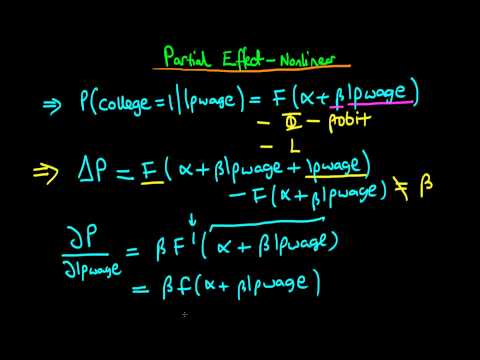 Partial Effect - Nonlinear
⇒ P(college=1|lpwage) = F(α+βlpwage)
- Φ - probit
- L
⇒ ΔP = F(α+βlpwage+lpwage)
- F(α+βlpwage) ≠ β
∂P/∂lpwage = βF'(α+βlpwage)
= βf(α+βlpwage)